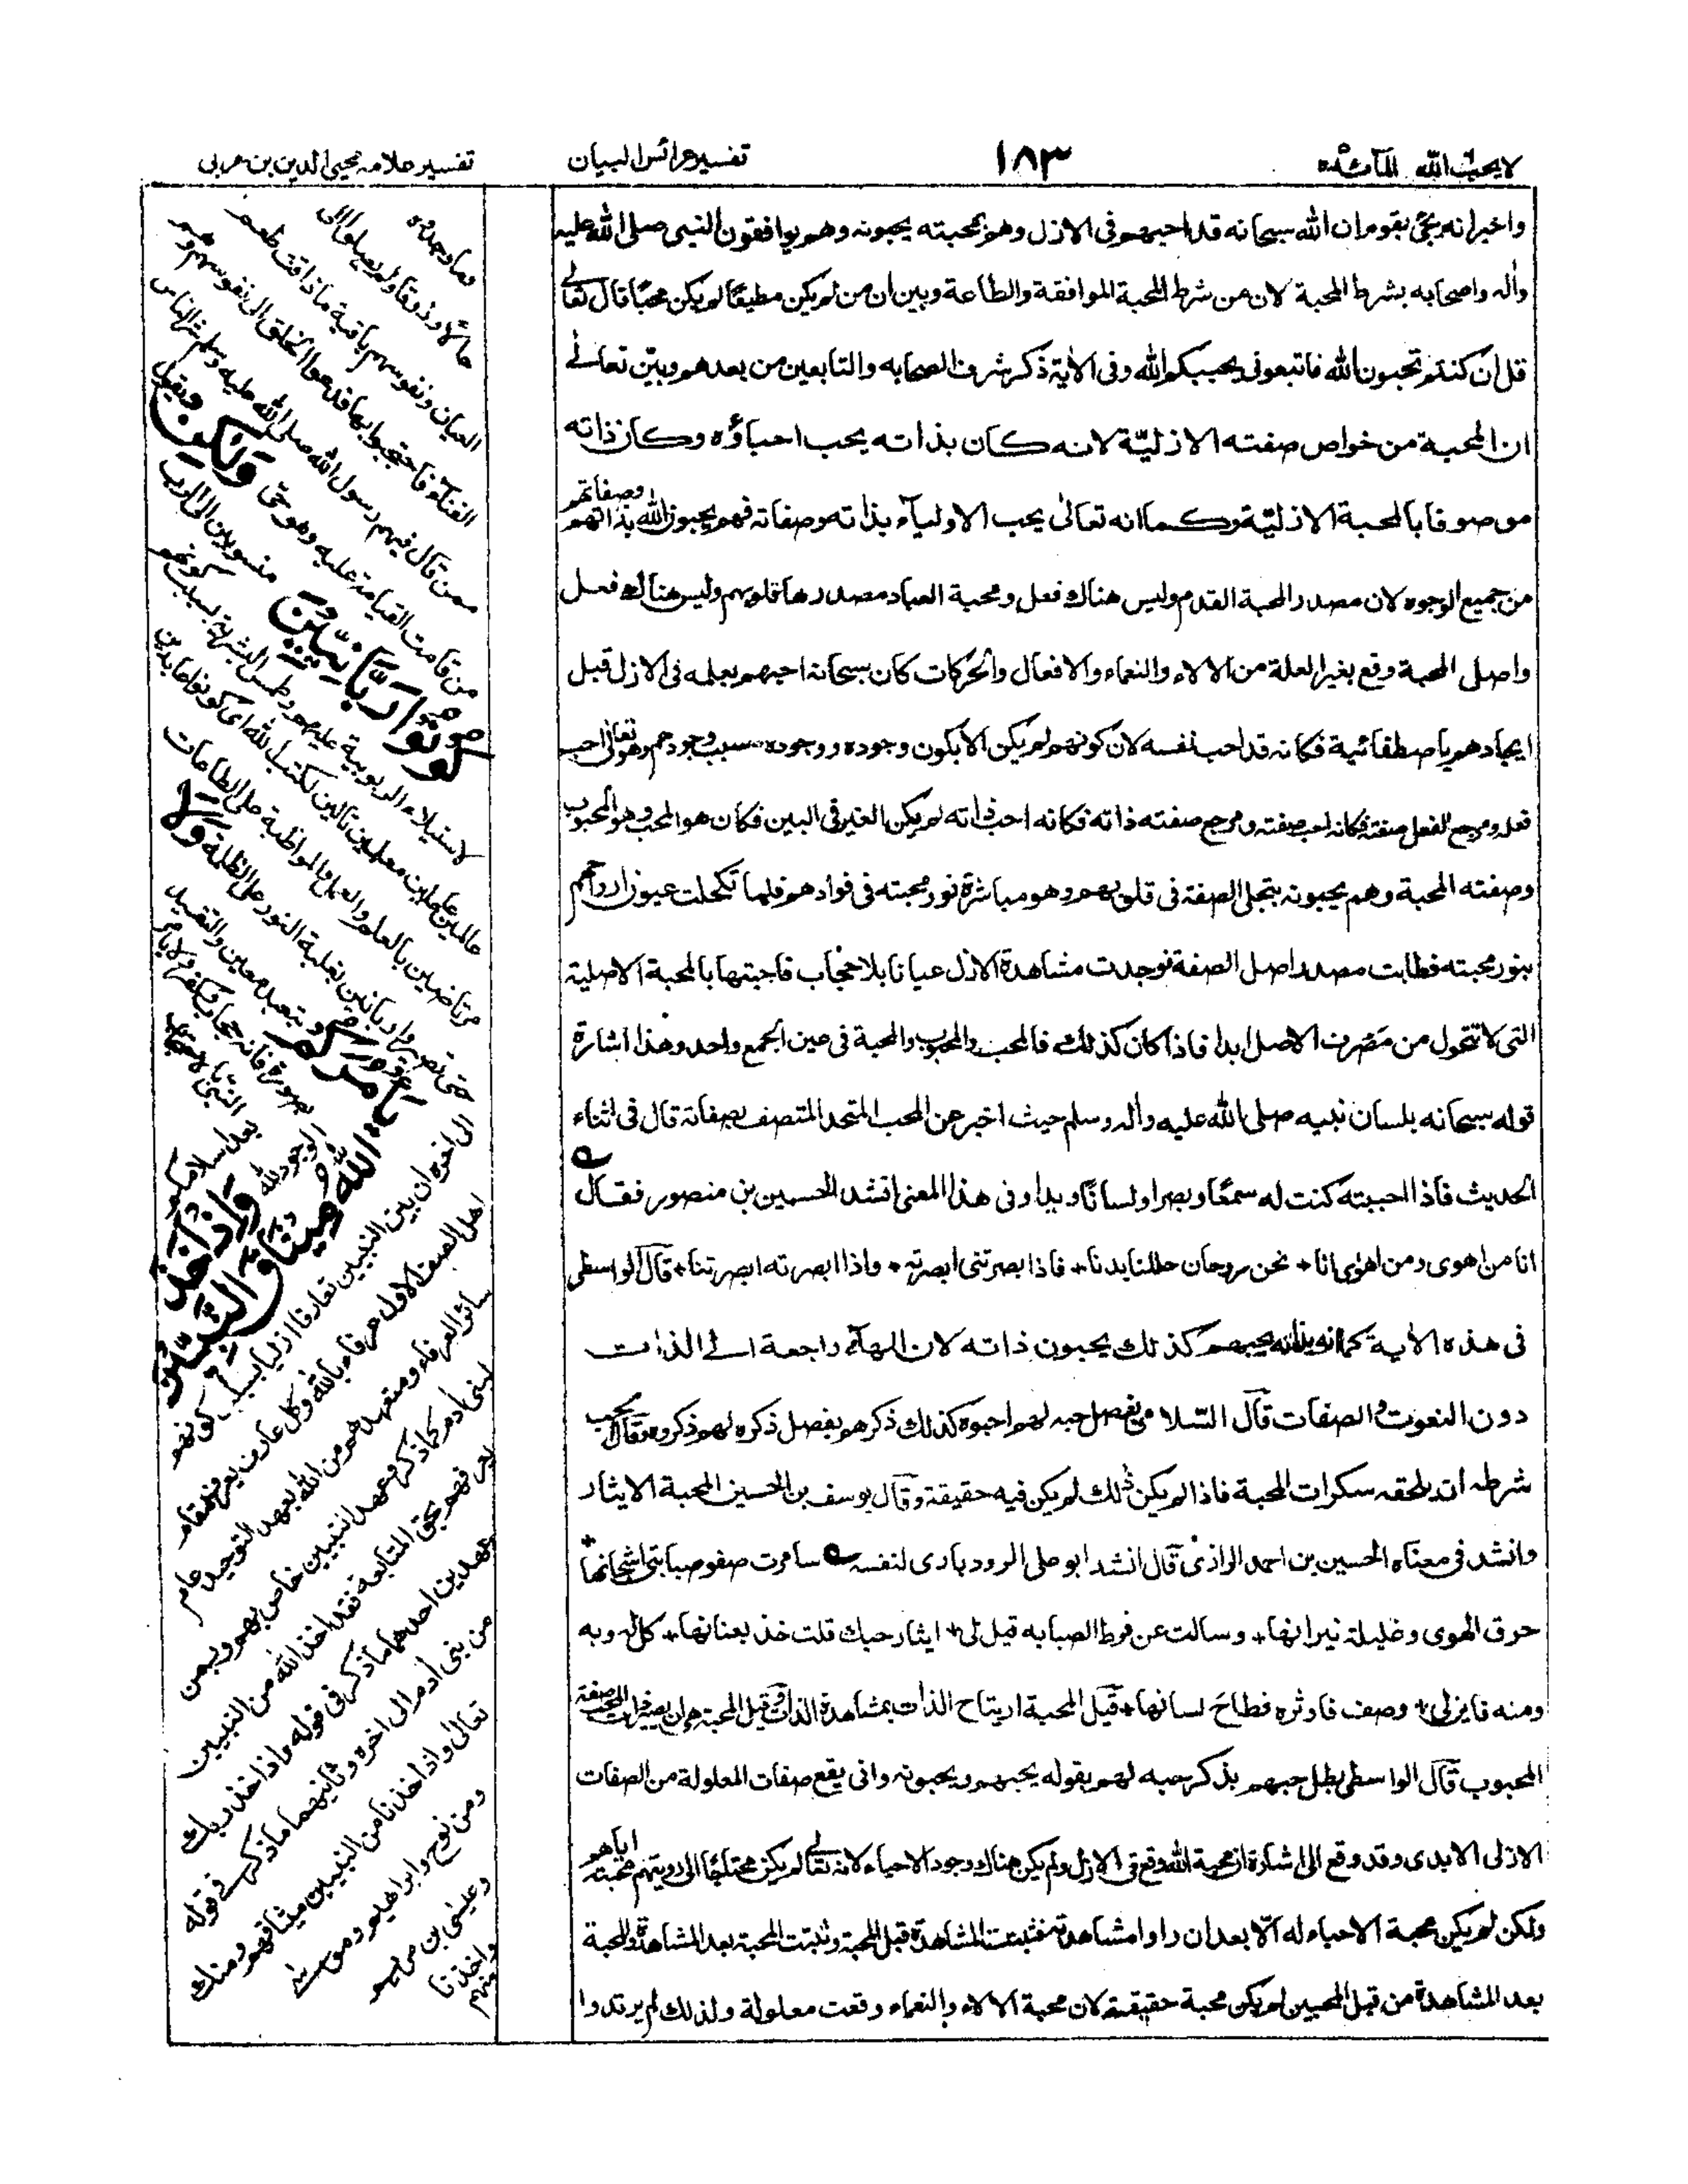 لا يحب الله المآئدة
١٨٣
تفسير عرائس البيان
تفسير علامه محيي الدين بن عربي
واخبر انه يجئ بقوم ان الله سبحانه قد احبهم فى الازل وهم بمحبته يحبونه وهم يوافقون النبى صلى الله عليه
واٰله واصحابه بشرط المحبة لان من شرط المحبة الموافقة والطاعة وبين ان من لم يكن مطيعًا لم يكن محبًا قال تعالى
قل ان كنتم تحبون الله فاتبعونى يحببكم الله وفى الاٰية ذكر شرف الصحابه والتابعين من بعدهم وبيّن تعالے
ان المحبة من خواص صفته الازليّة لانه كان بذاته يحب احباؤه وكان ذاته
موصوفا بالمحبة الازليّة وكما انه تعالىٰ يحب الاوليآء بذاته وصفاته فهم يحبون الله بذاتهم وصفاتهم
من جميع الوجوه لان مصدر المحبة القدم وليس هناك فعل ومحبة العباد مصدرها قلوبهم وليس هناك فعل
واصل المحبة وقع بغير العلة من الالاء والنعماء والافعال والحركات كان سبحانه احبهم بعلمه فى الازل قبل
ايجادهم باصطفائية فكانه قد احب نفسه لان كونهم لم يكن الا بكون وجوده ووجوده سبب وجودهم وهو تعالىٰ احب
فعله ومرجع الفعل صفته فكانه احب صفته ومرجع صفته ذاته فكانه احب ذاته لم يكن الغير فى البين فكان هو المحب وهو المحبوب
وصفته المحبة وهم يحبونه بتجلى الصفة فى قلوبهم وهو مباشرة نور محبته فى فوادهم فلما تكحلت عيون ارواحهم
بنور محبته فطابت مصدر اصل الصفة فوجدت مشاهدة الازل عيانا بلا حجاب فاحبتها بالمحبة الاصلية
التى لا تتحول من مَصْرف الاصل ابدا فاذا كان كذلك فالمحب والمحبوب والمحبة فى عين الجمع واحد وهذا اشارة
قوله سبحانه بلسان نبيه صلى الله عليه واٰله وسلم حيث اخبر عن المحب المتحد المتصف بصفاته قال فى اثناء
الحديث فاذا احببته كنت له سمعًا وبصرا ولسانًا ويدا وفى هذا المعنى انشد الحسين بن منصور فقال
انا من اهوى ومن اهوى انا + نحن روحان حللنا بدنا + فاذا ابصرتنى ابصرته + واذا ابصرته ابصرتنا + قال الواسطى
فى هذه الاٰية كما انه بذاته يحبهم كذلك يحبون ذاته لان الهآء راجعة الے الذات
دون النعوت والصفات قال السّلامى بفضل حبه لهم احبوه كذلك ذكرهم بفضل ذكره لهم ذكروه وقال
شرطه ان يلحقه سكرات المحبة فاذا لم يكن ذلك لم يكن فيه حقيقة وقال يوسف بن الحسين المحبة الايثار
وانشد فى معناه الحسين بن احمد الرازى قال انشد ابو على الرودبارى لنفسه سامرت صفو صبابتى اشجانها
حرق الهوى وغليلة نيرانها + وسالت عن فرط الصبابه قيل لى + ايثار حبك قلت خذ بعنانها + كل له وبه
ومنه فايزلى + وصف فاوثره فطاح لسانها + قيل المحبة ارتياح الذات بمشاهدة الذات وقيل المحبة هى ان يصير المحب صفة
المحبوب قال الواسطى بطل حبهم بذكر حبه لهم بقوله يحبهم ويحبونه وانى يقع صفات المعلولة من الصفات
الازلى الابدى وقد وقع الى اشارة ان محبة الله وقع فى الازل ولم يكن هناك وجود الاحباء لانه تعالى لم يكن محتاجا الى رويتهم محبته اياهم
ولكن لم يكن محبة الاحباء له الّا بعد ان راوا مشاهدته فثبتت المشاهدة قبل المحبة وثبتت المحبة بعد المشاهدة والمحبة
بعد المشاهدة من قبل المحبين لم يكن محبة حقيقية لان محبة الالاء والنعماء وقعت معلولة ولذلك لم يرتدوا
العيان ونفوسهم باقية ماذاقت طعم
الفنآء فاحتجبوا بها فدعوا الخلق الى نفوسهم وهم
ممن قال فيهم رسول الله صلى الله عليه وسلم شر الناس
من قامت القيامة عليه وهو حىّ
وَلٰكِنْ
كُوْنُوْا رَبَّانِيّٖنَ
منسوبين الى الرب
لاستيلاء الربوبية عليهم وطمس البشرية بسبب كونهم
عالمين عاملين معلمين تالين لكتب الله اى كونوا عابدين
مرتاضين بالعلم والعمل والمواظبة على الطاعات
حتى تصيروا ربانيين بغلبة النور على الظلمة
وَلَا
يَاْمُرَكُمْ
بعد اسلامكم
وَاِذْ اَخَذَ
اللّٰهُ مِيْثَاقَ النَّبِيّٖنَ
الى اٰخره ان بين النبيين تعارفا ازليا بسبب كونهم
اهل الصف الاول عرفاء بالله وكل عارف يعرف مقام
سائر العرفاء ومتعهدهم من الله بعهد التوحيد عام
لبنى اٰدم كما ذكر وعهد النبيين خاص بهم وبمن
يعرفهم بحق المتابعة فقد اخذ الله من النبيين
عهدين احدهما ما ذكر فى قوله واذ اخذ ربك
من بنى اٰدم الى اٰخره وثانيهما ما ذكر فى قوله
تعالىٰ واذ اخذنا من النبيين ميثاقهم ومنك
ومن نوح وابراهيم وموسى
وعيسٰى بن مريم
واخذنا
منهم